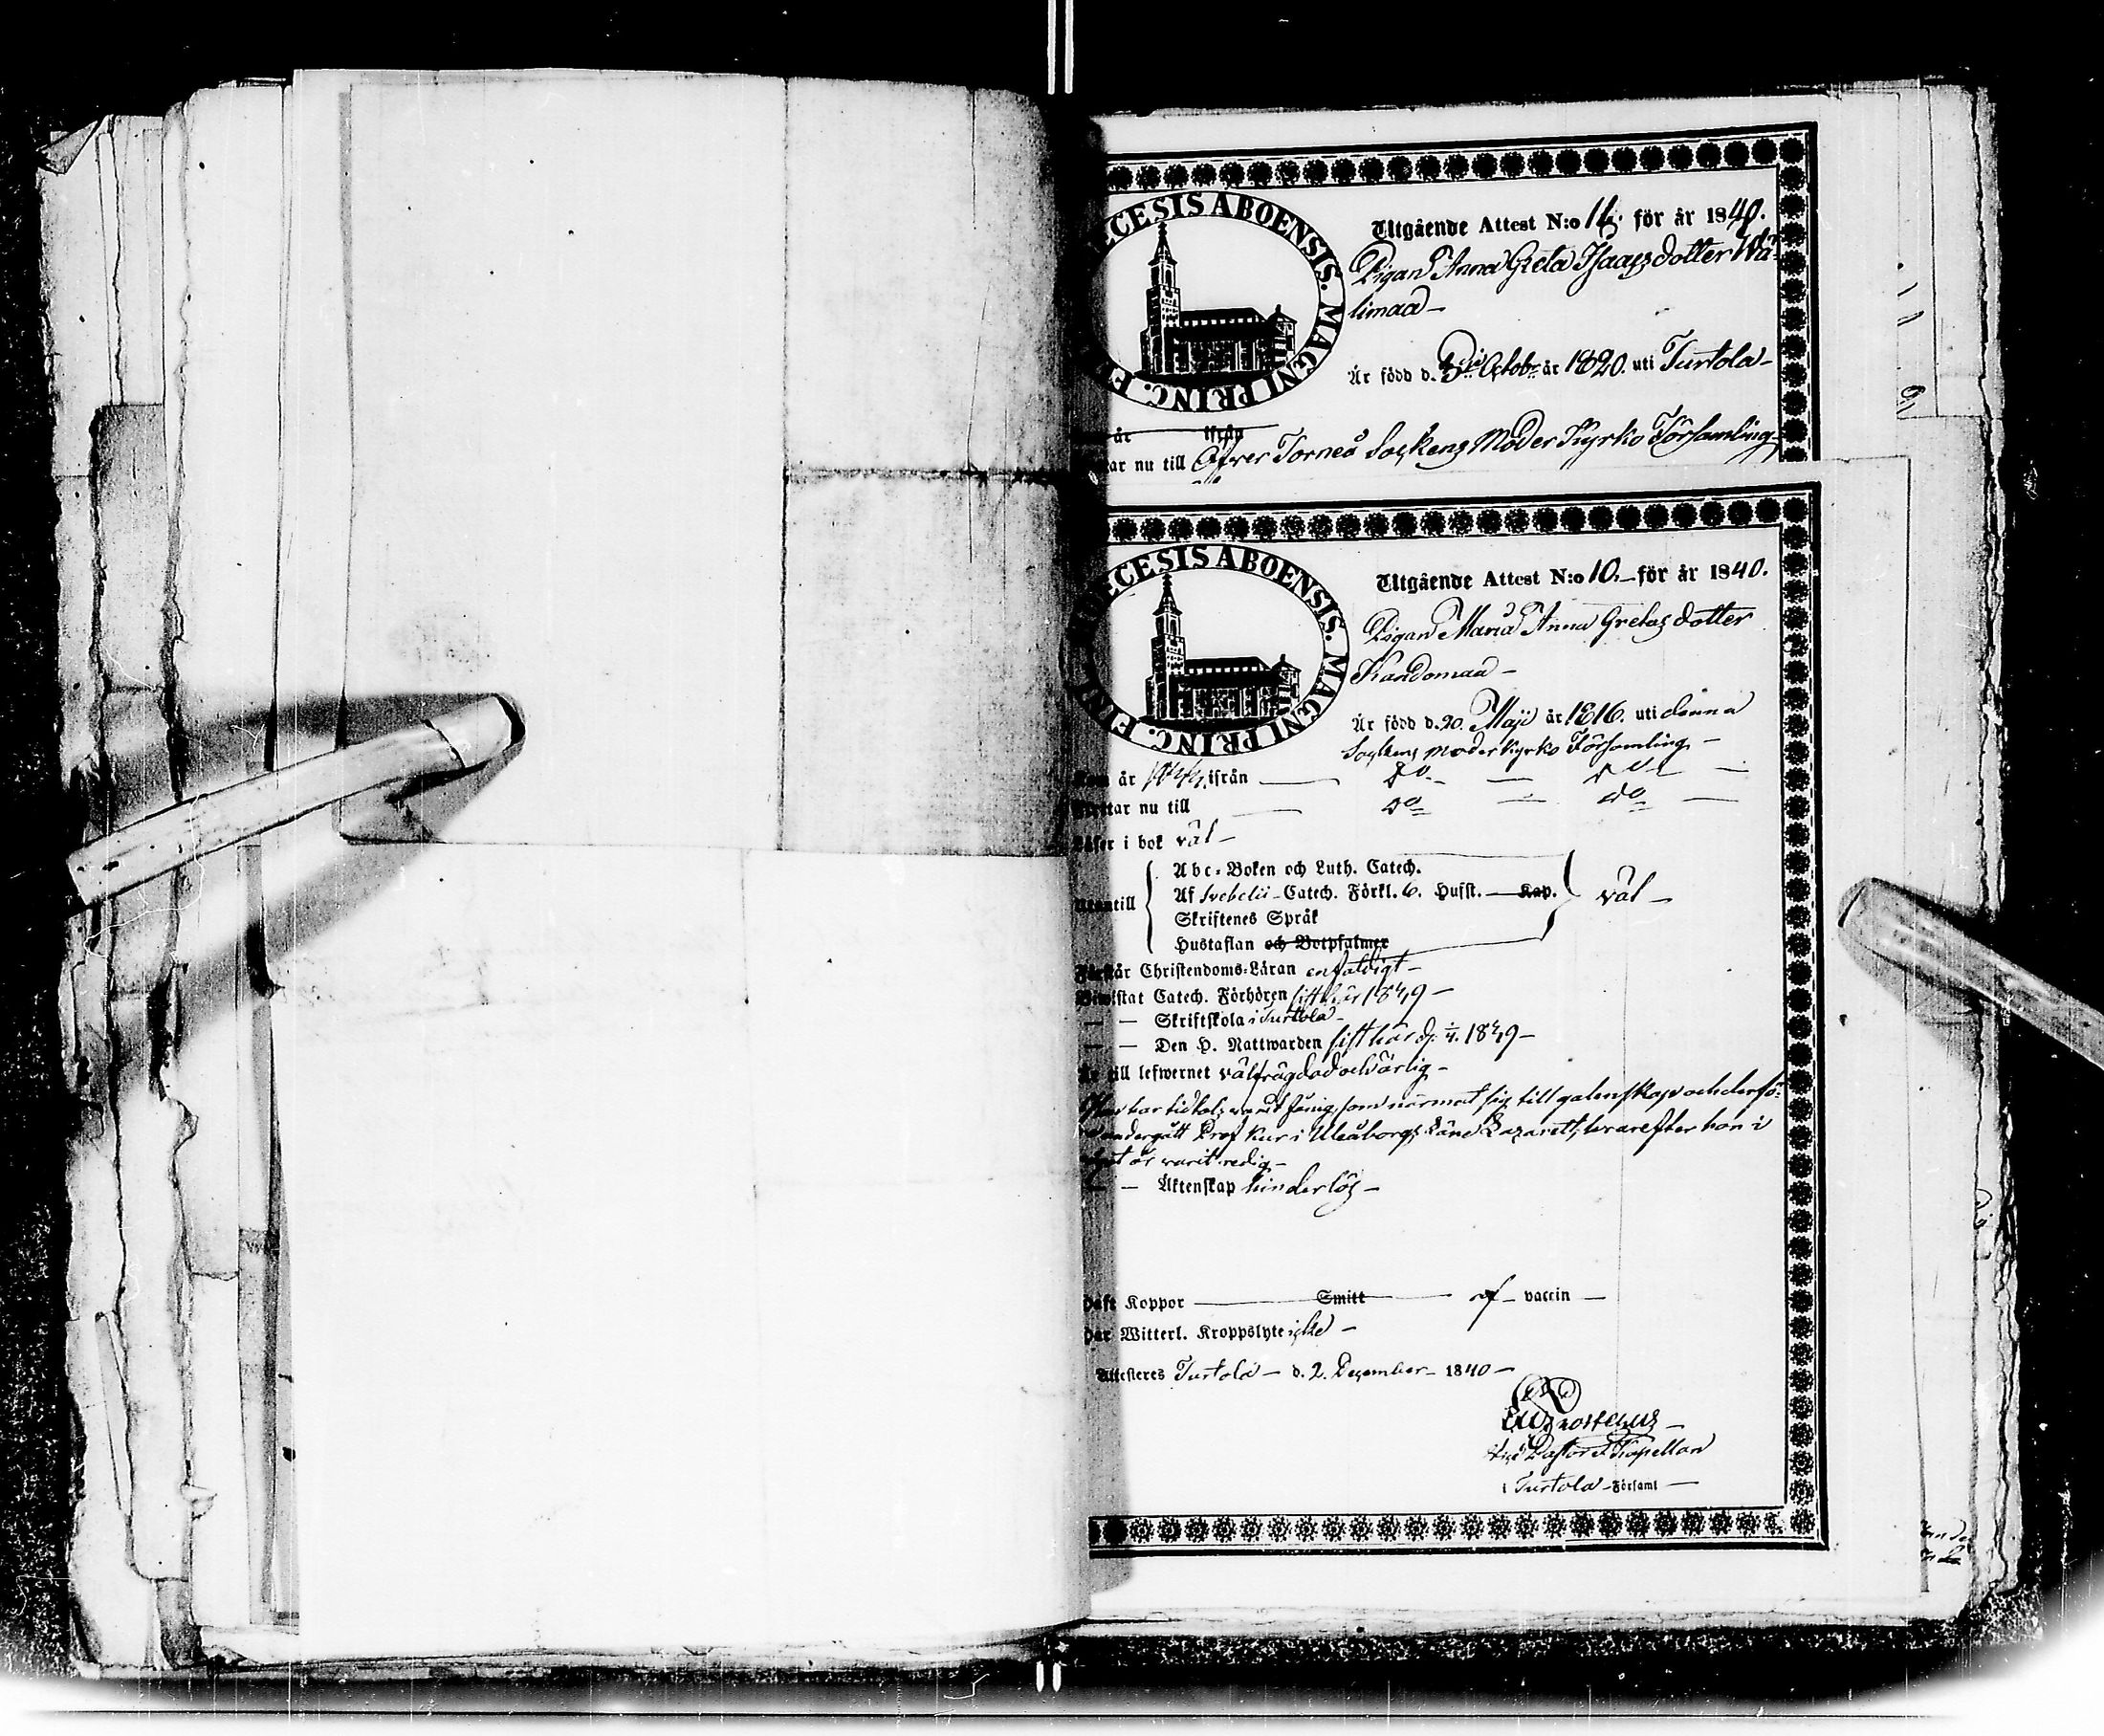 CESIS ABOENSIS. MAGNI PRINC. F
Utgående Attest N:o 14. för år 1840.
Pigan Anna Greta Isaacsdotter Wä-
limaa –
Är född d. 3 Octob. år 1820. uti Turtola –
år ifrån
nu till Öfver Torneå Sockens Moder Kyrko Församling
CESIS ABOENSIS. MAGNI PRINC. FIN
Utgående Attest N:o 10. – för år 1840.
Pigan Maria Anna Gretas dotter
Kandomaa –
Är född d. 20. Maji år 1816. uti denna
Sockens moderkyrko Församling –
år ifrån — Do — Do —
nu till — do — do —
i bok väl –
Abc-Boken och Luth. Catech.
Af Svebelii – Catech. Förkl. 6. Hufst. — Kap. väl –
Skriftenes Språk
Hustaflan och Botpsalmer
Förstår Christendoms-Läran enfaldigt –
Catech. Förhören sist här 1849 –
— — Skriftskola i Turtola –
— — Den H. Nattwarden sist här d. 1849 –
till lefwernet välfrägdad och ärlig –
har tidtals varit fånig, som närmat sig till galenskap och derfö-
undergått Prof kur i Uleåborgs Läns Lazarett, hvarefter hon i
år varit redig –
— — Äktenskap hinderlös –
Haft Koppor — Smitt — af – vaccin —
Har Witterl. Kroppslyte icke –
Attesteres Turtola – d. 2. December – 1840 –
Pastor & Kapellan
i Turtola – Församl —